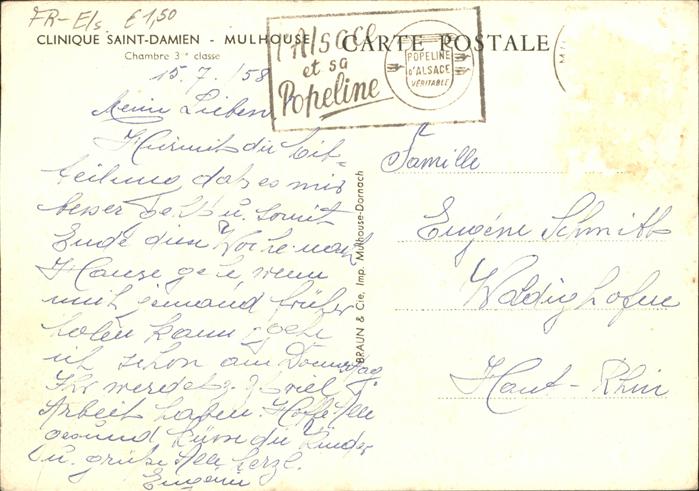 FR-E/s € 1,50
CLINIQUE SAINT-DAMIEN - MULHOUSE
Chambre 3e classe
L'ALSACE
et sa
Popeline
POPELINE
D'ALSACE
VÉRITABLE
CARTE POSTALE
15.7.58
Meine Lieben
Hiermit die Mit-
teilung dass es mir
besser geht u. somit
Ende dieser Woche nach
Hause gehe, wenn
mich jemand früher
holen kann gehe
ich schon am Donnerstag
Ihr werdet viel
Arbeit haben. Hoffe Alle
gesund küsse die Kinder
u. grüsse Alle herzl.
Eugénie
BRAUN & Cie, Imp. Mulhouse-Dornach
Famille
Eugéne Schmitt
Waldighofen
Haut-Rhin